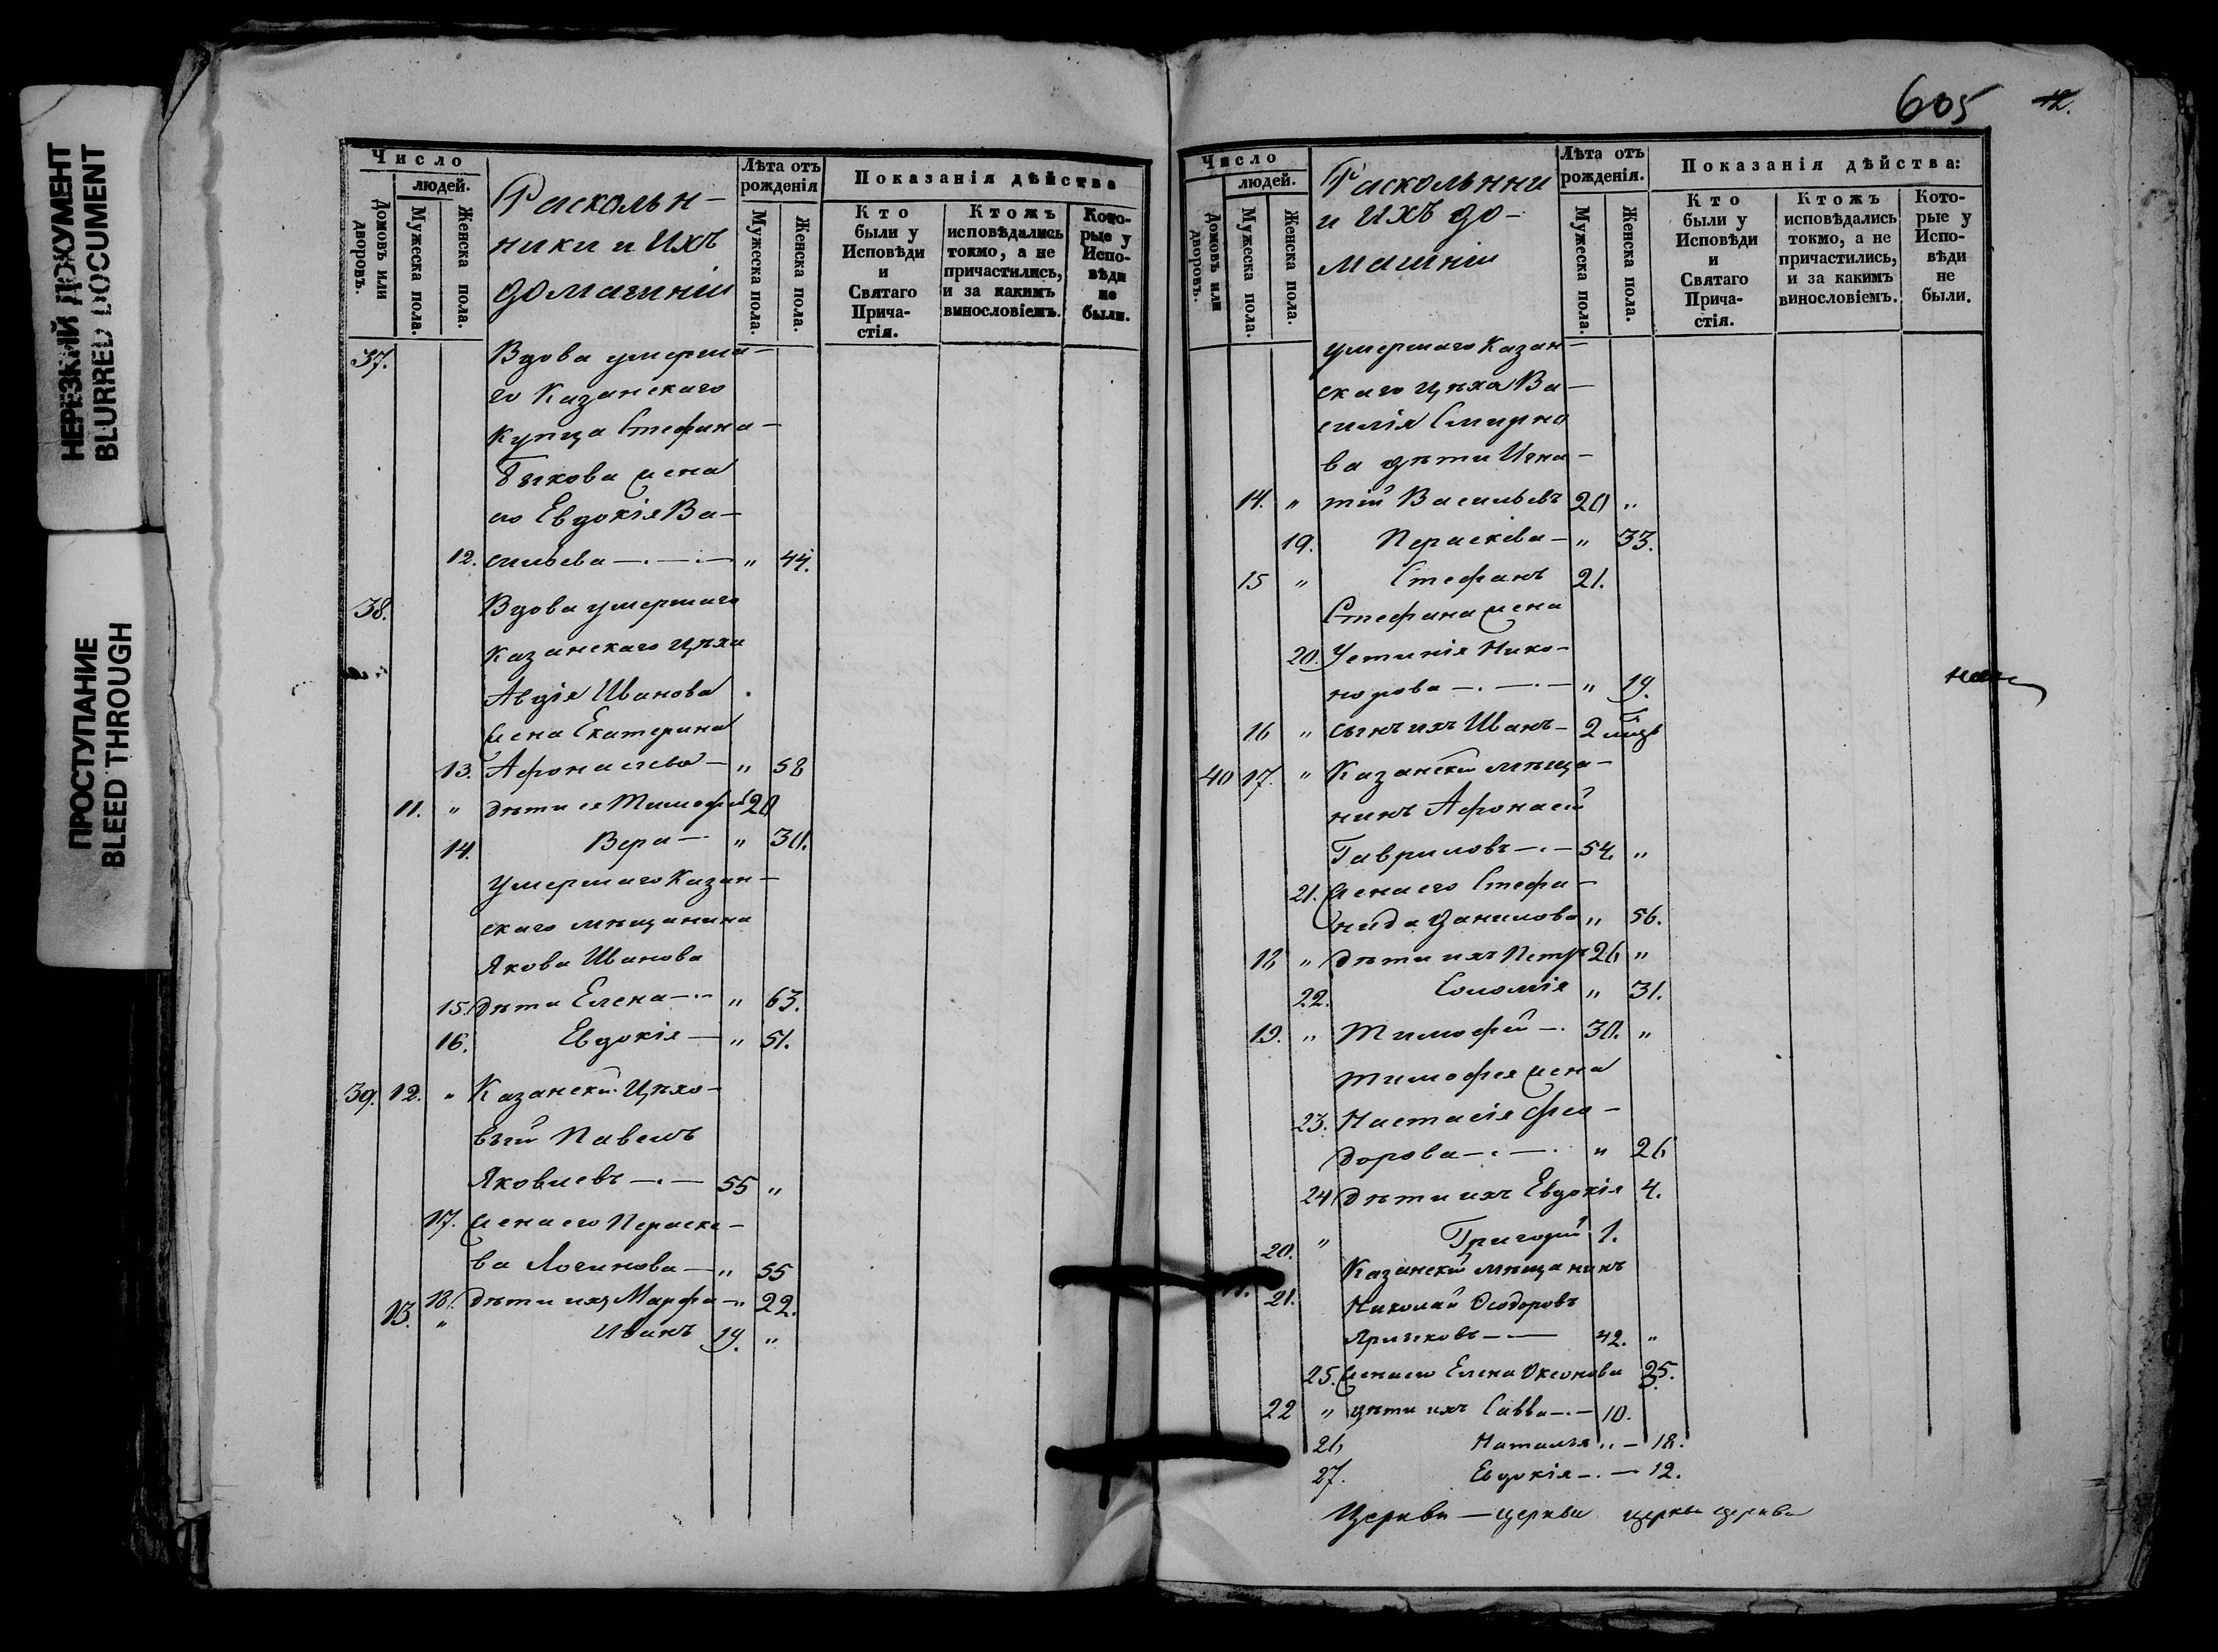 НЕРЕЗКИЙ ДОКУМЕНТ
BLURRED DOCUMENT
ПРОСТУПАНИЕ
BLEED THROUGH
Число
людей.
Домовъ или дворовъ.
Мужеска пола.
Женска пола.
Расколь-
ники и ихъ
домашніи
Лѣта отъ рожденія
Мужеска пола.
Женска пола.
Показанія дѣйства
Кто были у Исповѣди и Святаго Прича-стія.
Ктожъ исповѣдались токмо, а не причастились, и за какимъ винословіемъ.
Кото-рые у Испо-вѣди не были.
37. Вдова умерша-
го Казанскаго
Купца Стефана
Быкова жена
его Евдокія Ва-
12. сильева " 44.
38. Вдова умершаго
Казанскаго цѣха
Авдія Иванова
жена Екатерина
13. Афонасьева " 58
11. " дѣти ея Тимофей 20
14. Вера " 30.
умершаго Казан-
скаго мѣщанина
Якова Иванова
15. дѣти Елена " 63.
16. Евдокія " 51.
39. 12. " Казанскій Цѣхо-
вый Павелъ
Яковлевъ 55 "
17. жена его Параске-
ва Логинова " 55
18. дѣти ихъ Марфа " 22.
13. " Иванъ 19. "
605 12.
Число
людей.
Домовъ или дворовъ.
Мужеска пола.
Женска пола.
Раскольнии
и ихъ до-
машніи
Лѣта отъ рожденія.
Мужеска пола.
Женска пола.
Показанія дѣйства:
Кто были у Исповѣди и Святаго Прича-стія.
Ктожъ исповѣдались токмо, а не причастились, и за какимъ винословіемъ.
Кото-рые у Испо-вѣди не были.
умершаго Казан-
скаго цѣха Ва-
силія Смирно
ва дѣти Игна-
14. " тій Васильевъ 20 "
19. Параскева " 33.
15 " Стефанъ 21.
Стефана жена
20. Устинія Нико-
норова " 19.
16 " сынъ ихъ Иванъ 2 мѣс
40 17. " Казанскій мѣща-
нинъ Афонасій
Гавриловъ 54. "
21. жена его Стефа-
нида Данилова " 56.
18 " дѣти ихъ Петръ 26 "
22. Соломія " 31.
19. " Тимофей 30. "
Тимофея жена
23. Настасія Фео-
дорова " 26
24 дѣти ихъ Евдокія 4.
20. " Григорій 1.
Казанскій мѣщанинъ
21. Николай Ѳеодоровъ
Ярлыковъ 42. "
25. жена его Елена 35.
22 " дѣти ихъ Савва 10.
26 Наталья " 18.
27. Евдокія 12.
Церкви церкви церкви церкви